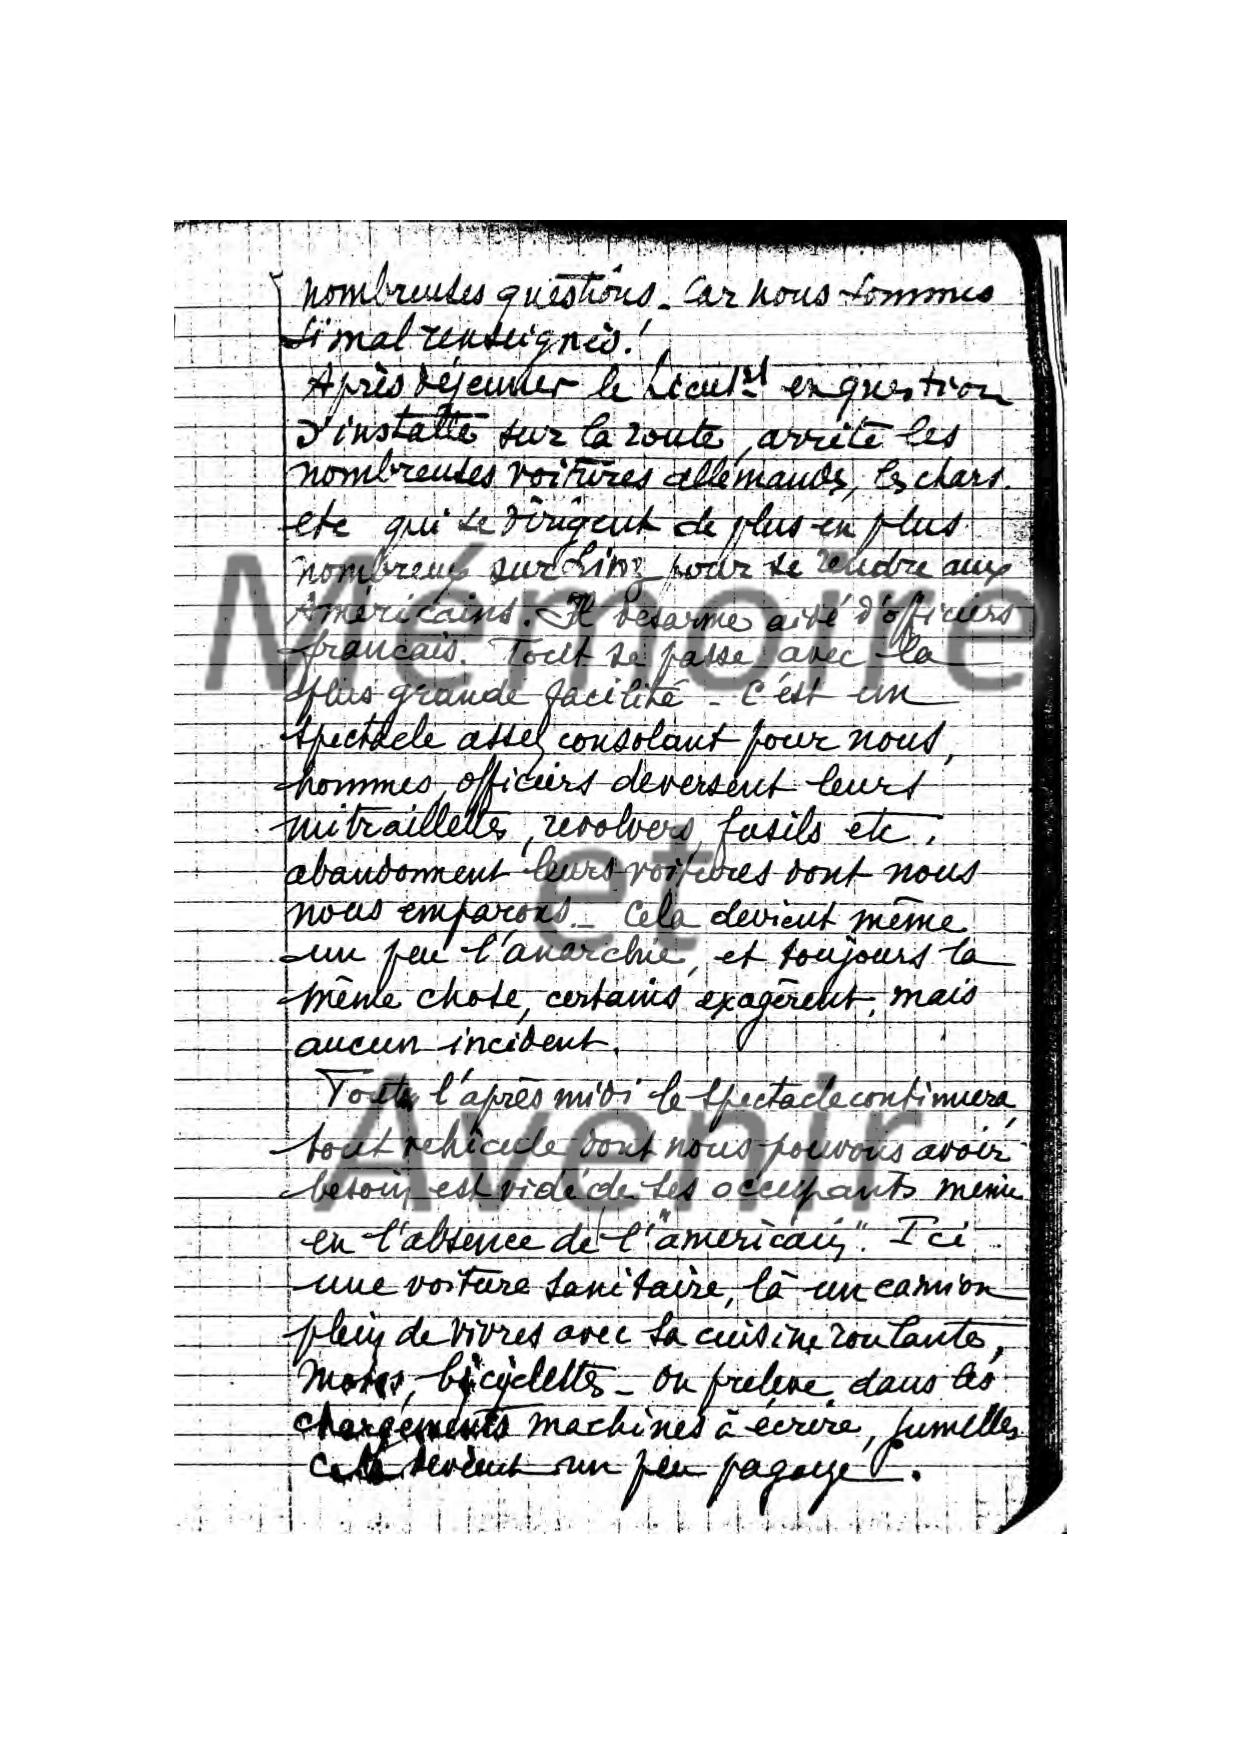 nombreuses questions - Car nous sommes
si mal renseignés !
Après déjeuner le Lieut<sup>nt</sup> en question
s'installe sur la route, arrête les
nombreuses voitures allemandes, les chars
etc qui se dirigent de plus en plus
nombreux sur Linz pour se rendre aux
Américains. Il desarme aidé d'officiers
français. Tout se passe avec la
plus grande facilité - C'est un
spectacle assez consolant pour nous,
hommes, officiers deversent leurs
mitraillettes, revolvers, fusils etc,
abandonnent leurs voitures dont nous
nous emparons - Cela devient même
un peu l'anarchie, et toujours la
même chose, certains exagèrent, mais
aucun incident.
Toute l'après midi le spectacle continuera,
tout vehicule dont nous pouvons avoir
besoin est vidé de ses occupants même
en l'absence de l'"américain". Ici
une voiture sanitaire, là un camion
plein de vivres avec sa cuisine roulante,
motos, bicyclettes - On prelève dans les
chargements machines à écrire, jumelles
Cela devient un peu pagaye.
Mémoire
et
Avenir